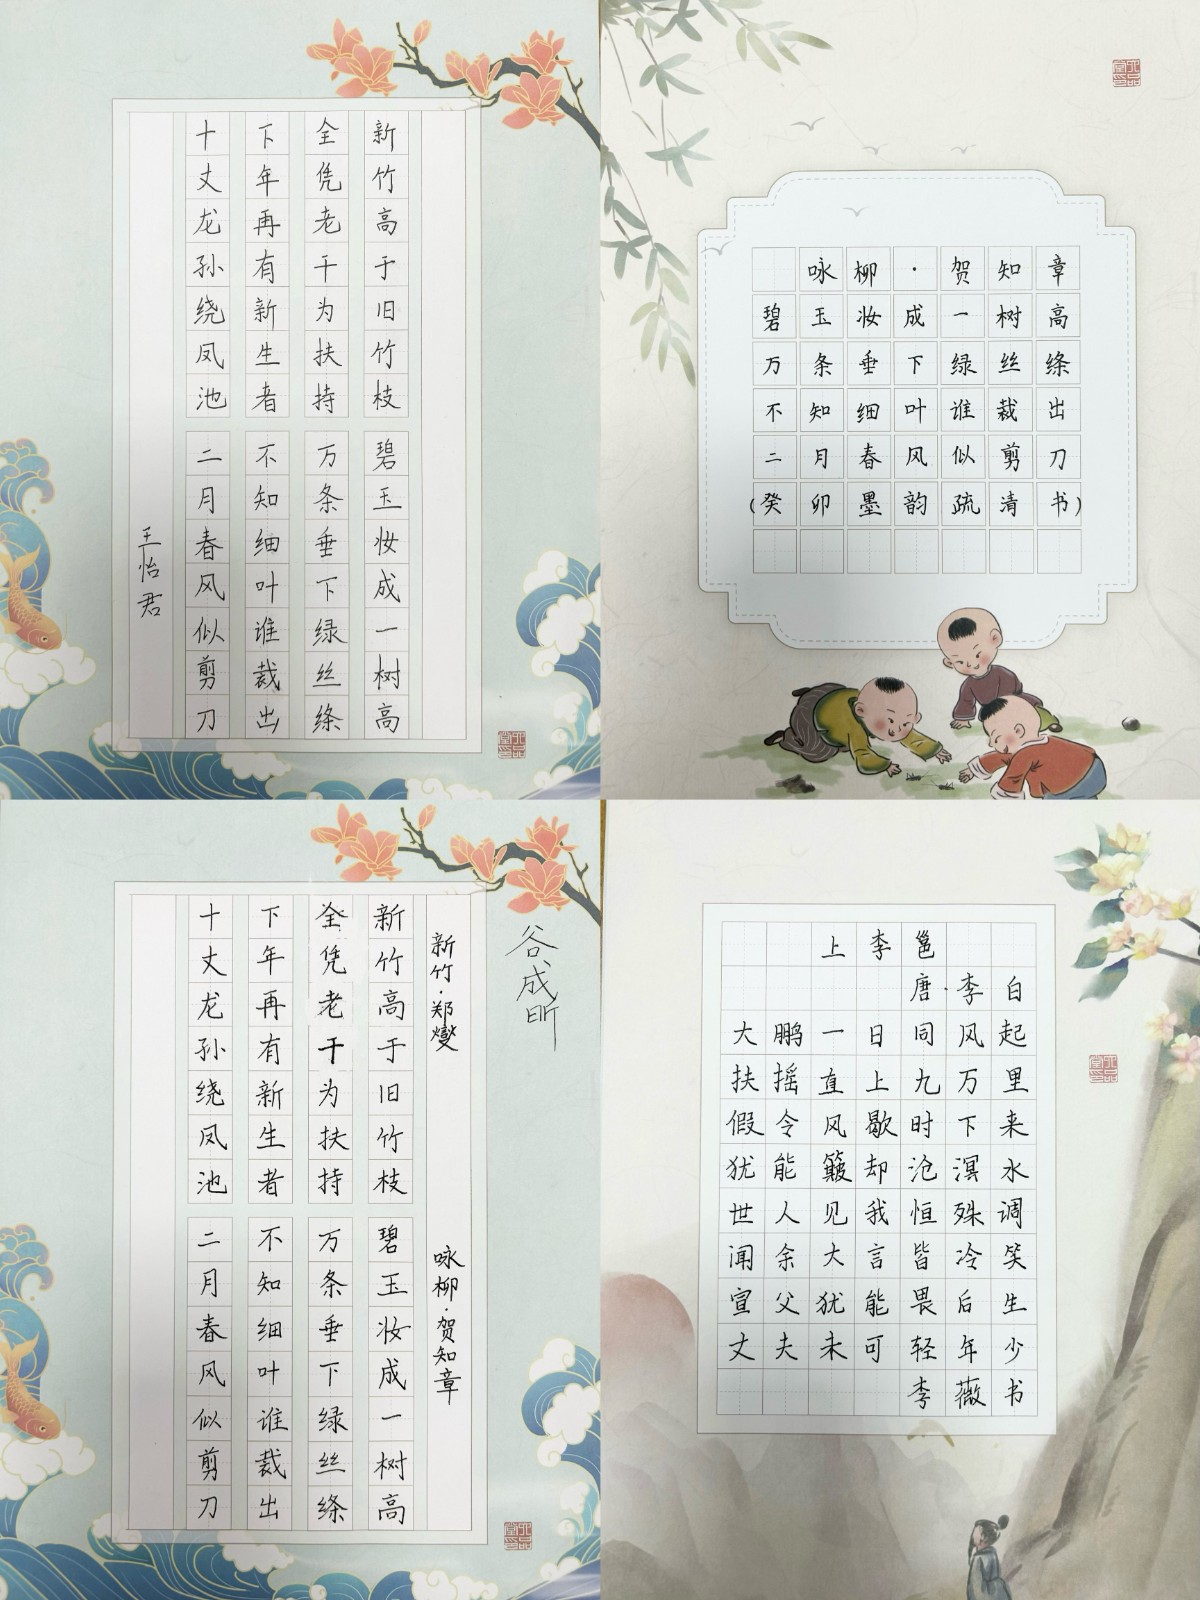 新竹高于旧竹枝
全凭老干为扶持
下年再有新生者
十丈龙孙绕凤池
碧玉妆成一树高
万条垂下绿丝绦
不知细叶谁裁出
二月春风似剪刀
王怡君
咏柳·贺知章
碧玉妆成一树高
万条垂下绿丝绦
不知细叶谁裁出
二月春风似剪刀
(癸卯墨韵疏清书)
谷成昕
新竹·郑燮
新竹高于旧竹枝
全凭老干为扶持
下年再有新生者
十丈龙孙绕凤池
咏柳·贺知章
碧玉妆成一树高
万条垂下绿丝绦
不知细叶谁裁出
二月春风似剪刀
上李邕
唐·李白
大鹏一日同风起
扶摇直上九万里
假令风歇时下来
犹能簸却沧溟水
世人见我恒殊调
闻余大言皆冷笑
宣父犹能畏后生
丈夫未可轻年少
李薇书